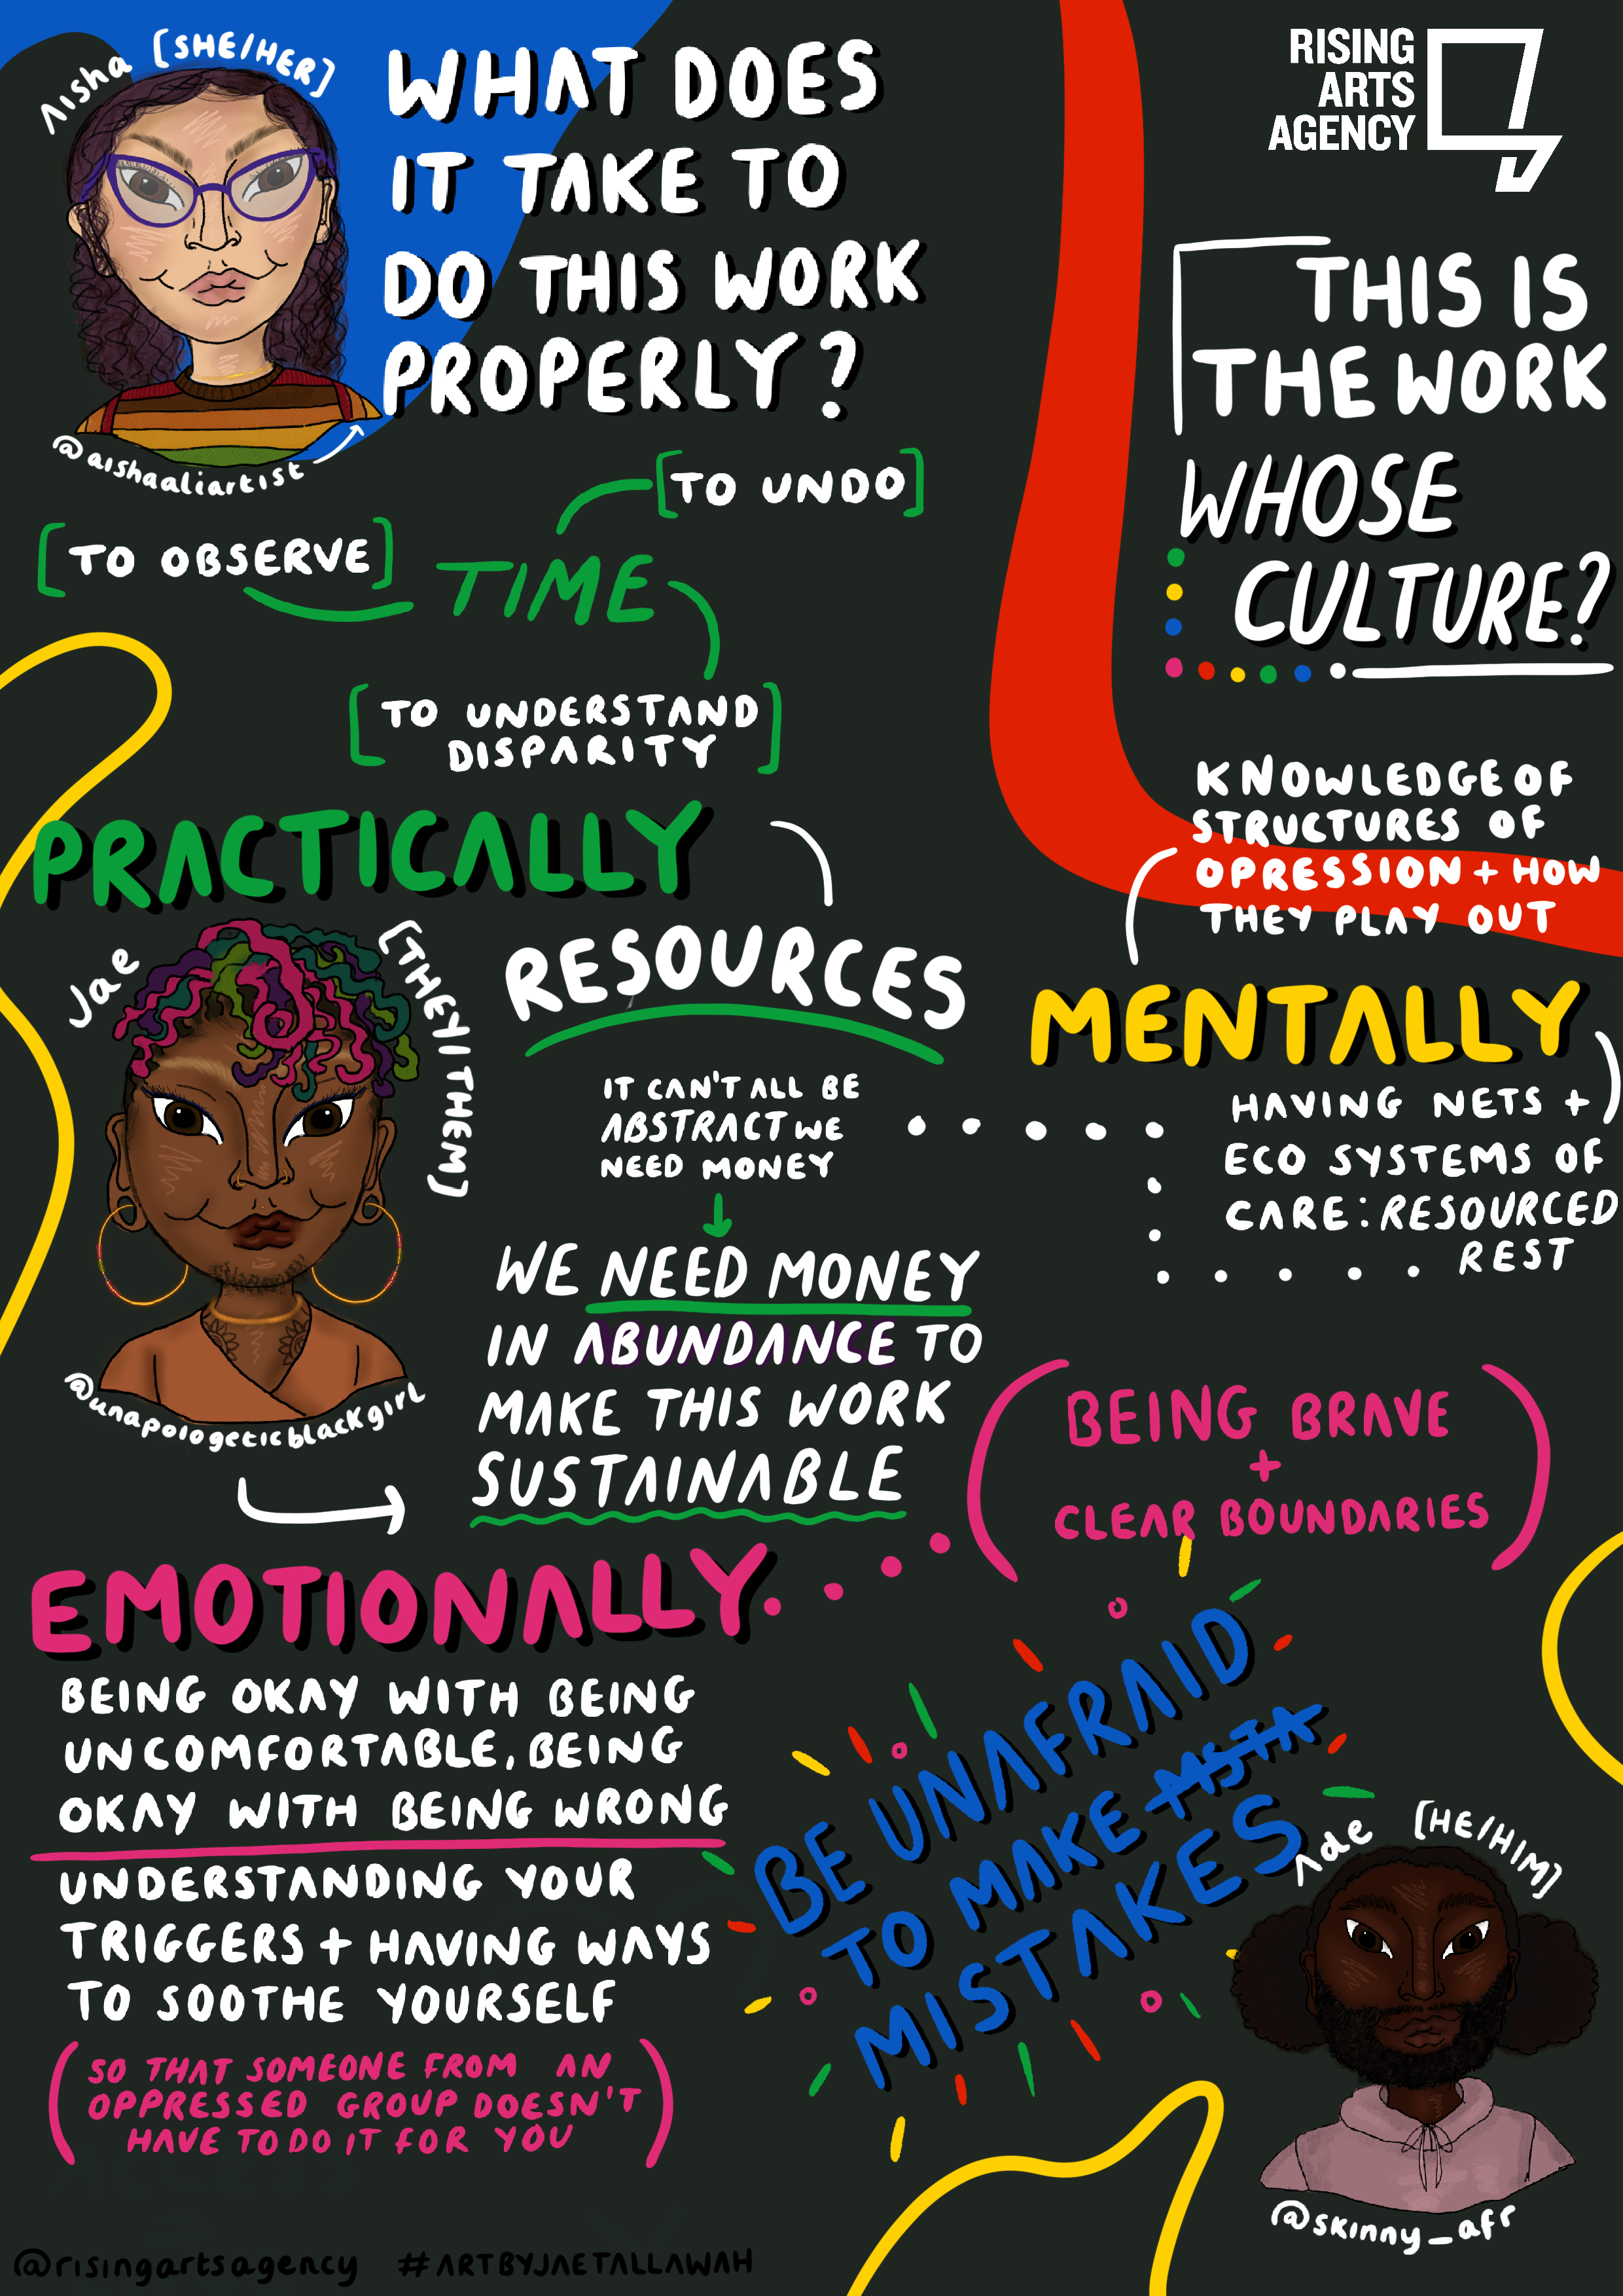 Aisha [SHE/HER]
WHAT DOES
IT TAKE TO
DO THIS WORK
PROPERLY?
@aishaaliartist
RISING
ARTS
AGENCY
THIS IS
THE WORK
WHOSE
CULTURE?
[TO UNDO]
[TO OBSERVE]
TIME
[TO UNDERSTAND
DISPARITY]
PRACTICALLY
Jae
[THEY/THEM]
@unapologeticblackgirl
RESOURCES
IT CAN'T ALL BE
ABSTRACT WE
NEED MONEY
WE NEED MONEY
IN ABUNDANCE TO
MAKE THIS WORK
SUSTAINABLE
KNOWLEDGE OF
STRUCTURES OF
OPRESSION + HOW
THEY PLAY OUT
MENTALLY
HAVING NETS +
ECO SYSTEMS OF
CARE: RESOURCED
REST
EMOTIONALLY
(BEING BRAVE
+
CLEAR BOUNDARIES)
BEING OKAY WITH BEING
UNCOMFORTABLE, BEING
OKAY WITH BEING WRONG
UNDERSTANDING YOUR
TRIGGERS + HAVING WAYS
TO SOOTHE YOURSELF
(SO THAT SOMEONE FROM AN
OPPRESSED GROUP DOESN'T
HAVE TO DO IT FOR YOU)
BE UNAFRAID
TO MAKE
MISTAKES
Ade [HE/HIM]
@skinny_afr
@risingartsagency #ARTBYJAETALLAWAH